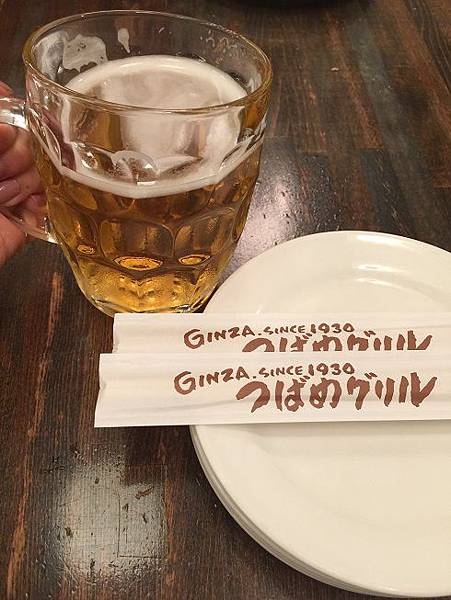 GINZA. SINCE 1930
つばめグリル
GINZA. SINCE 1930
つばめグリル